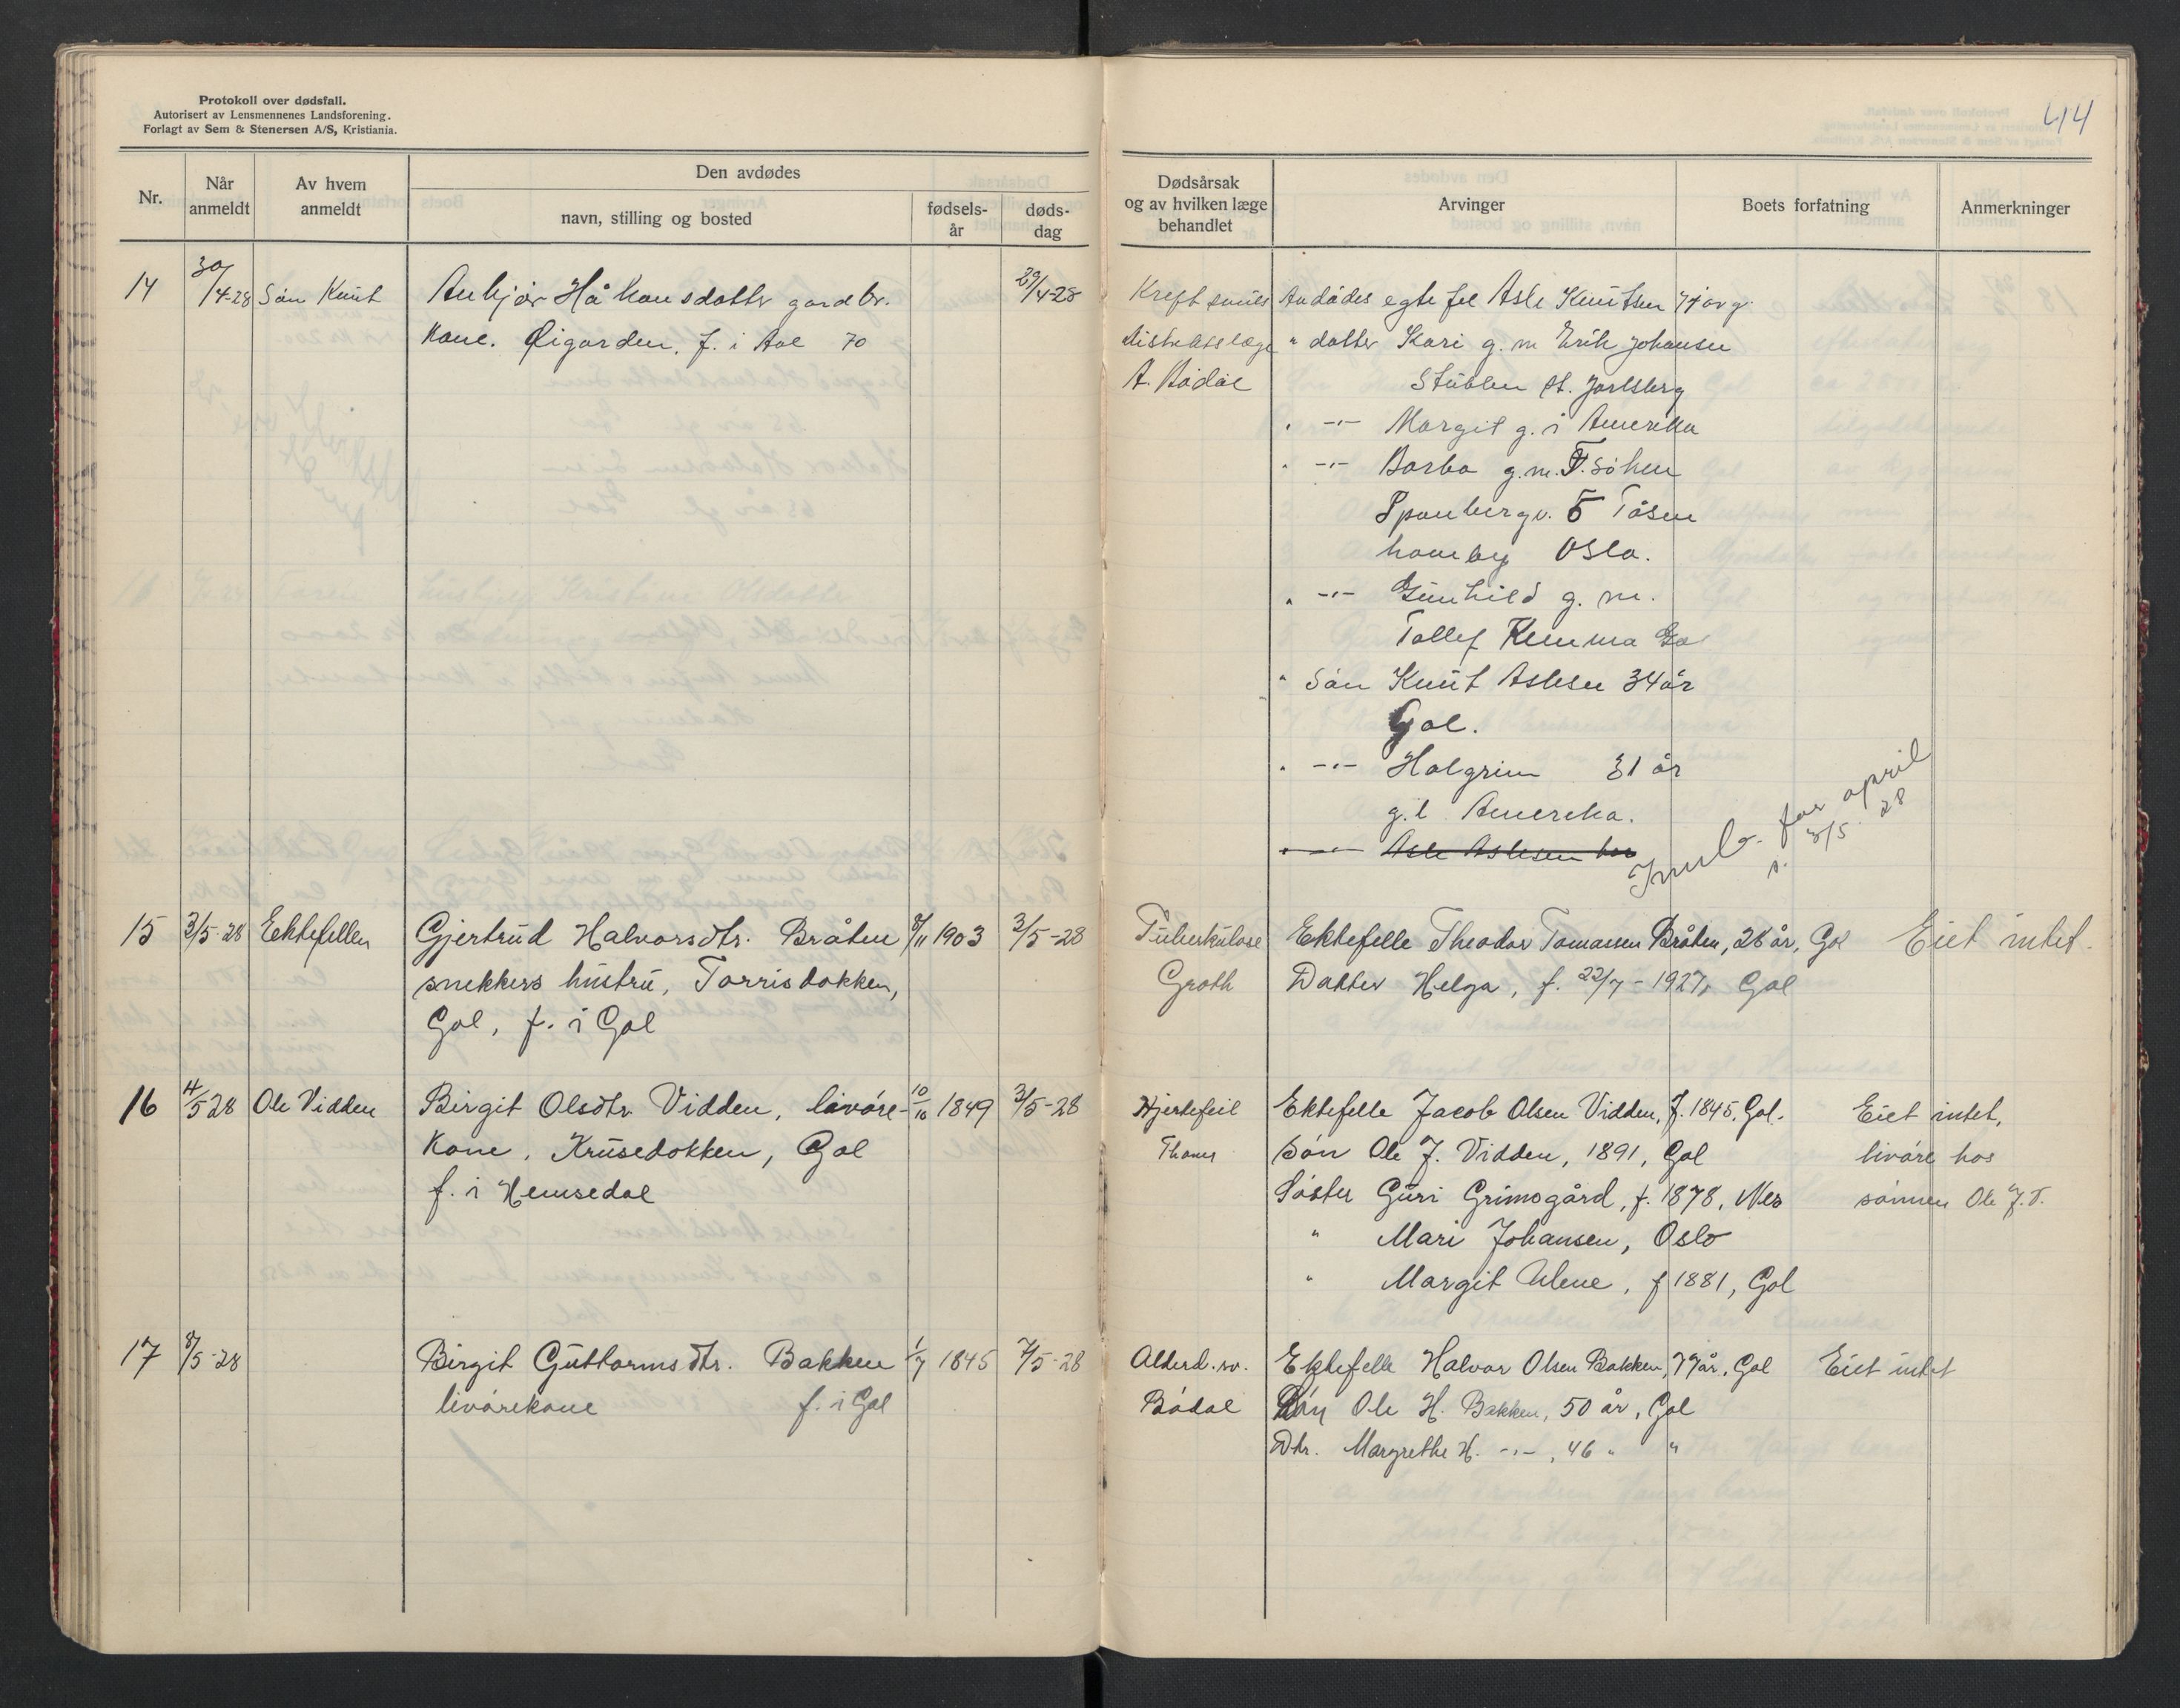 Protokoll over dødsfall.
Autorisert av Lensmennenes Landsforening.
Forlagt av Sem & Stenersen A/S, Kristiania.
44
Nr.
Når anmeldt
Av hvem anmeldt
Den avdødes
navn, stilling og bosted
fødsels-år
døds-dag
Dødsårsak og av hvilken læge behandlet
Arvinger
Boets forfatning
Anmerkninger
14 30/4-28 Søn Knut Anbjør Håkonsdatter gardbr. 29/4-28
kone. Øigarden, f. i Aal 70
Kreft
distriktslæge
A. Bødal
Avdødes egtefel Asle Knutsen 74 år g.
" datter Kari g. m Erik Johansen
Stubben st. Jarlsberg
" -"- Margit g. i Amerika
" -"- Barbo g. m. T. Søhen
Spanbergv. 5 Tåsen
haveby Oslo.
" -"- Gunhild g. m.
Tollef Kemma
" Søn Knut Aslesen 34 år
Gol.
" -"- Halgrim 31 år
g. i Amerika.
" -"- Asle Aslesen
Innb. for april
d. 3/5 28
15 3/5-28 Ektefellen Gjertrud Halvorsdtr. Bråten 8/11 1903 3/5-28
snekkers hustru, Torrisdokken,
Gol, f. i Gol
Tuberkulose
Groth
Ektefelle Theodor Tomassen Bråten, 28 år, Gol
Datter Helga, f. 22/7-1927, Gol
Eiet intet.
16 4/5 28 Ole Vidden Birgit Olsdtr. Vidden, livøre- 10/10 1849 3/5-28
kone, Krusedokken, Gol
f. i Hemsedal
Hjertefeil
Thomes
Ektefelle Jacob Olsen Vidden, f. 1845, Gol.
Søn Ole J. Vidden, 1891, Gol
Søster Guri Grimogård, f. 1878, Nes
" Mari Johansen, Oslo
" Margit Ulene, f 1881, Gol
Eiet intet,
livøre hos
sønnen Ole J. V.
17 8/5-28 Birgit Guttormsdtr. Bakken 1/7 1845 7/5-28
livørekone f. i Gol
Alderd. sv.
Bødal
Ektefelle Halvor Olsen Bakken, 79 år, Gol
Søn Ole H. Bakken, 50 år, Gol
Dtr. Margrethe H. -"-, 46 " "
Eiet intet